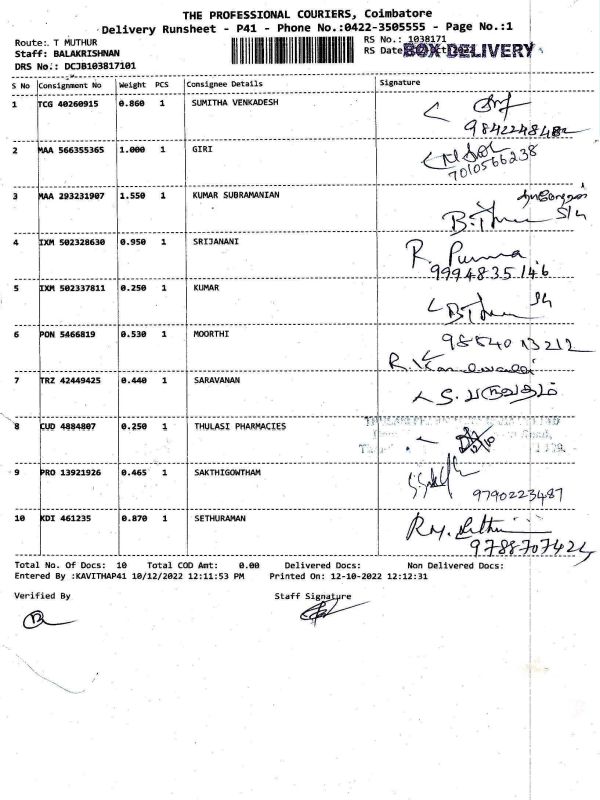 THE PROFESSIONAL COURIERS, Coimbatore
Delivery Runsheet - P41 - Phone No.:0422-3505555 - Page No.:1
Route:. T MUTHUR
RS No.: 1038171
Staff: BALAKRISHNAN
RS Date
BOX DELIVERY
DRS No.: DCJB103817101
S No Consignment No Weight PCS Consignee Details Signature
1 TCG 40260915 0.860 1 SUMITHA VENKADESH
9842248482
2 MAA 566355365 1.000 1 GIRI
7010566238
3 MAA 293231907 1.550 1 KUMAR SUBRAMANIAN
4 IXM 502328630 0.950 1 SRIJANANI
R. Purna
9994835146
5 IXM 502337811 0.250 1 KUMAR
6 PON 5466819 0.530 1 MOORTHI
9884013212
7 TRZ 42449425 0.440 1 SARAVANAN
8 CUD 4884807 0.250 1 THULASI PHARMACIES
9 PRO 13921926 0.465 1 SAKTHIGOWTHAM
9790223487
10 KDI 461235 0.870 1 SETHURAMAN
9788707424
Total No. Of Docs: 10 Total COD Amt: 0.00 Delivered Docs: Non Delivered Docs:
Entered By :KAVITHAP41 10/12/2022 12:11:53 PM Printed On: 12-10-2022 12:12:31
Verified By Staff Signature